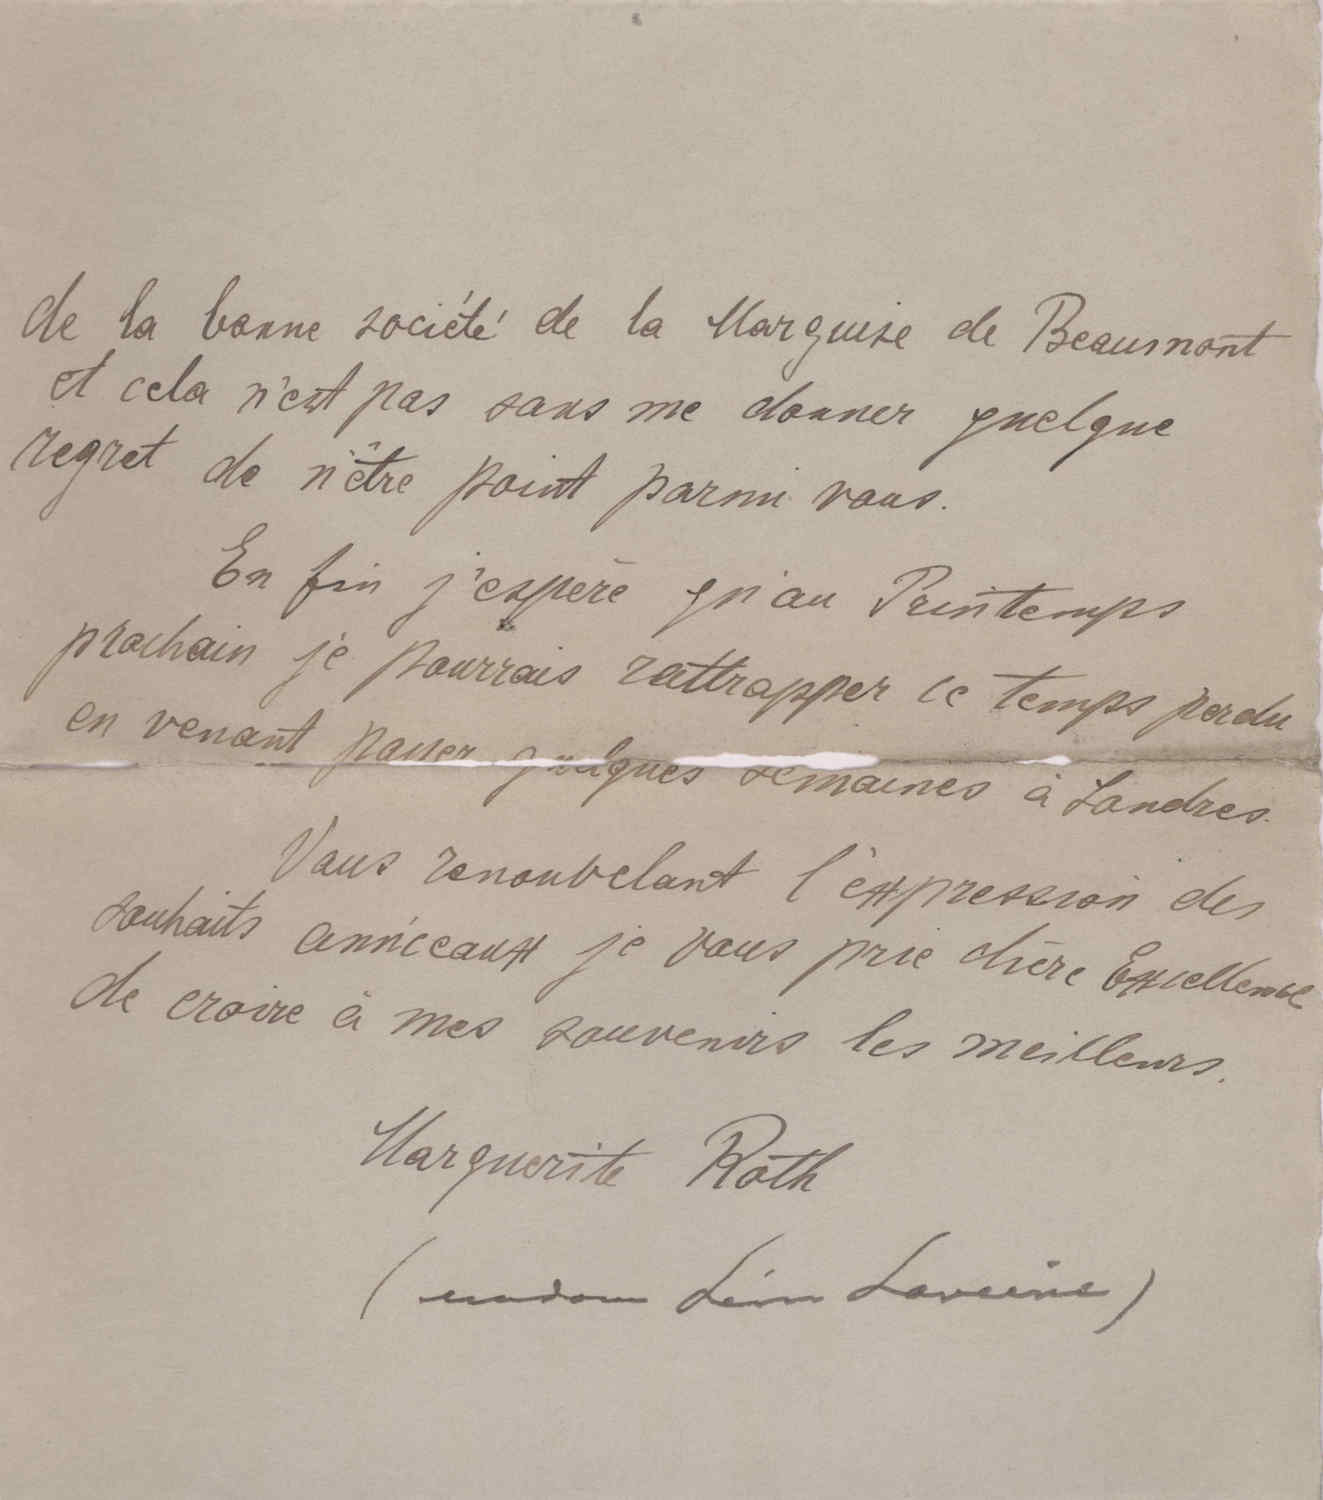 de la bonne société de la Marquise de Beaumont
et cela n'est pas sans me donner quelque
regret de n'être point parmi vous.
En fin j'espère qu'au Printemps
prochain je pourrais rattrapper ce temps perdu
en venant passer quelques semaines à Londres.
Vous renouvelant l'expression des
souhaits anniceaux je vous prie chère Excellence
de croire à mes souvenirs les meilleurs.
Marguerite Roth
( Léon )